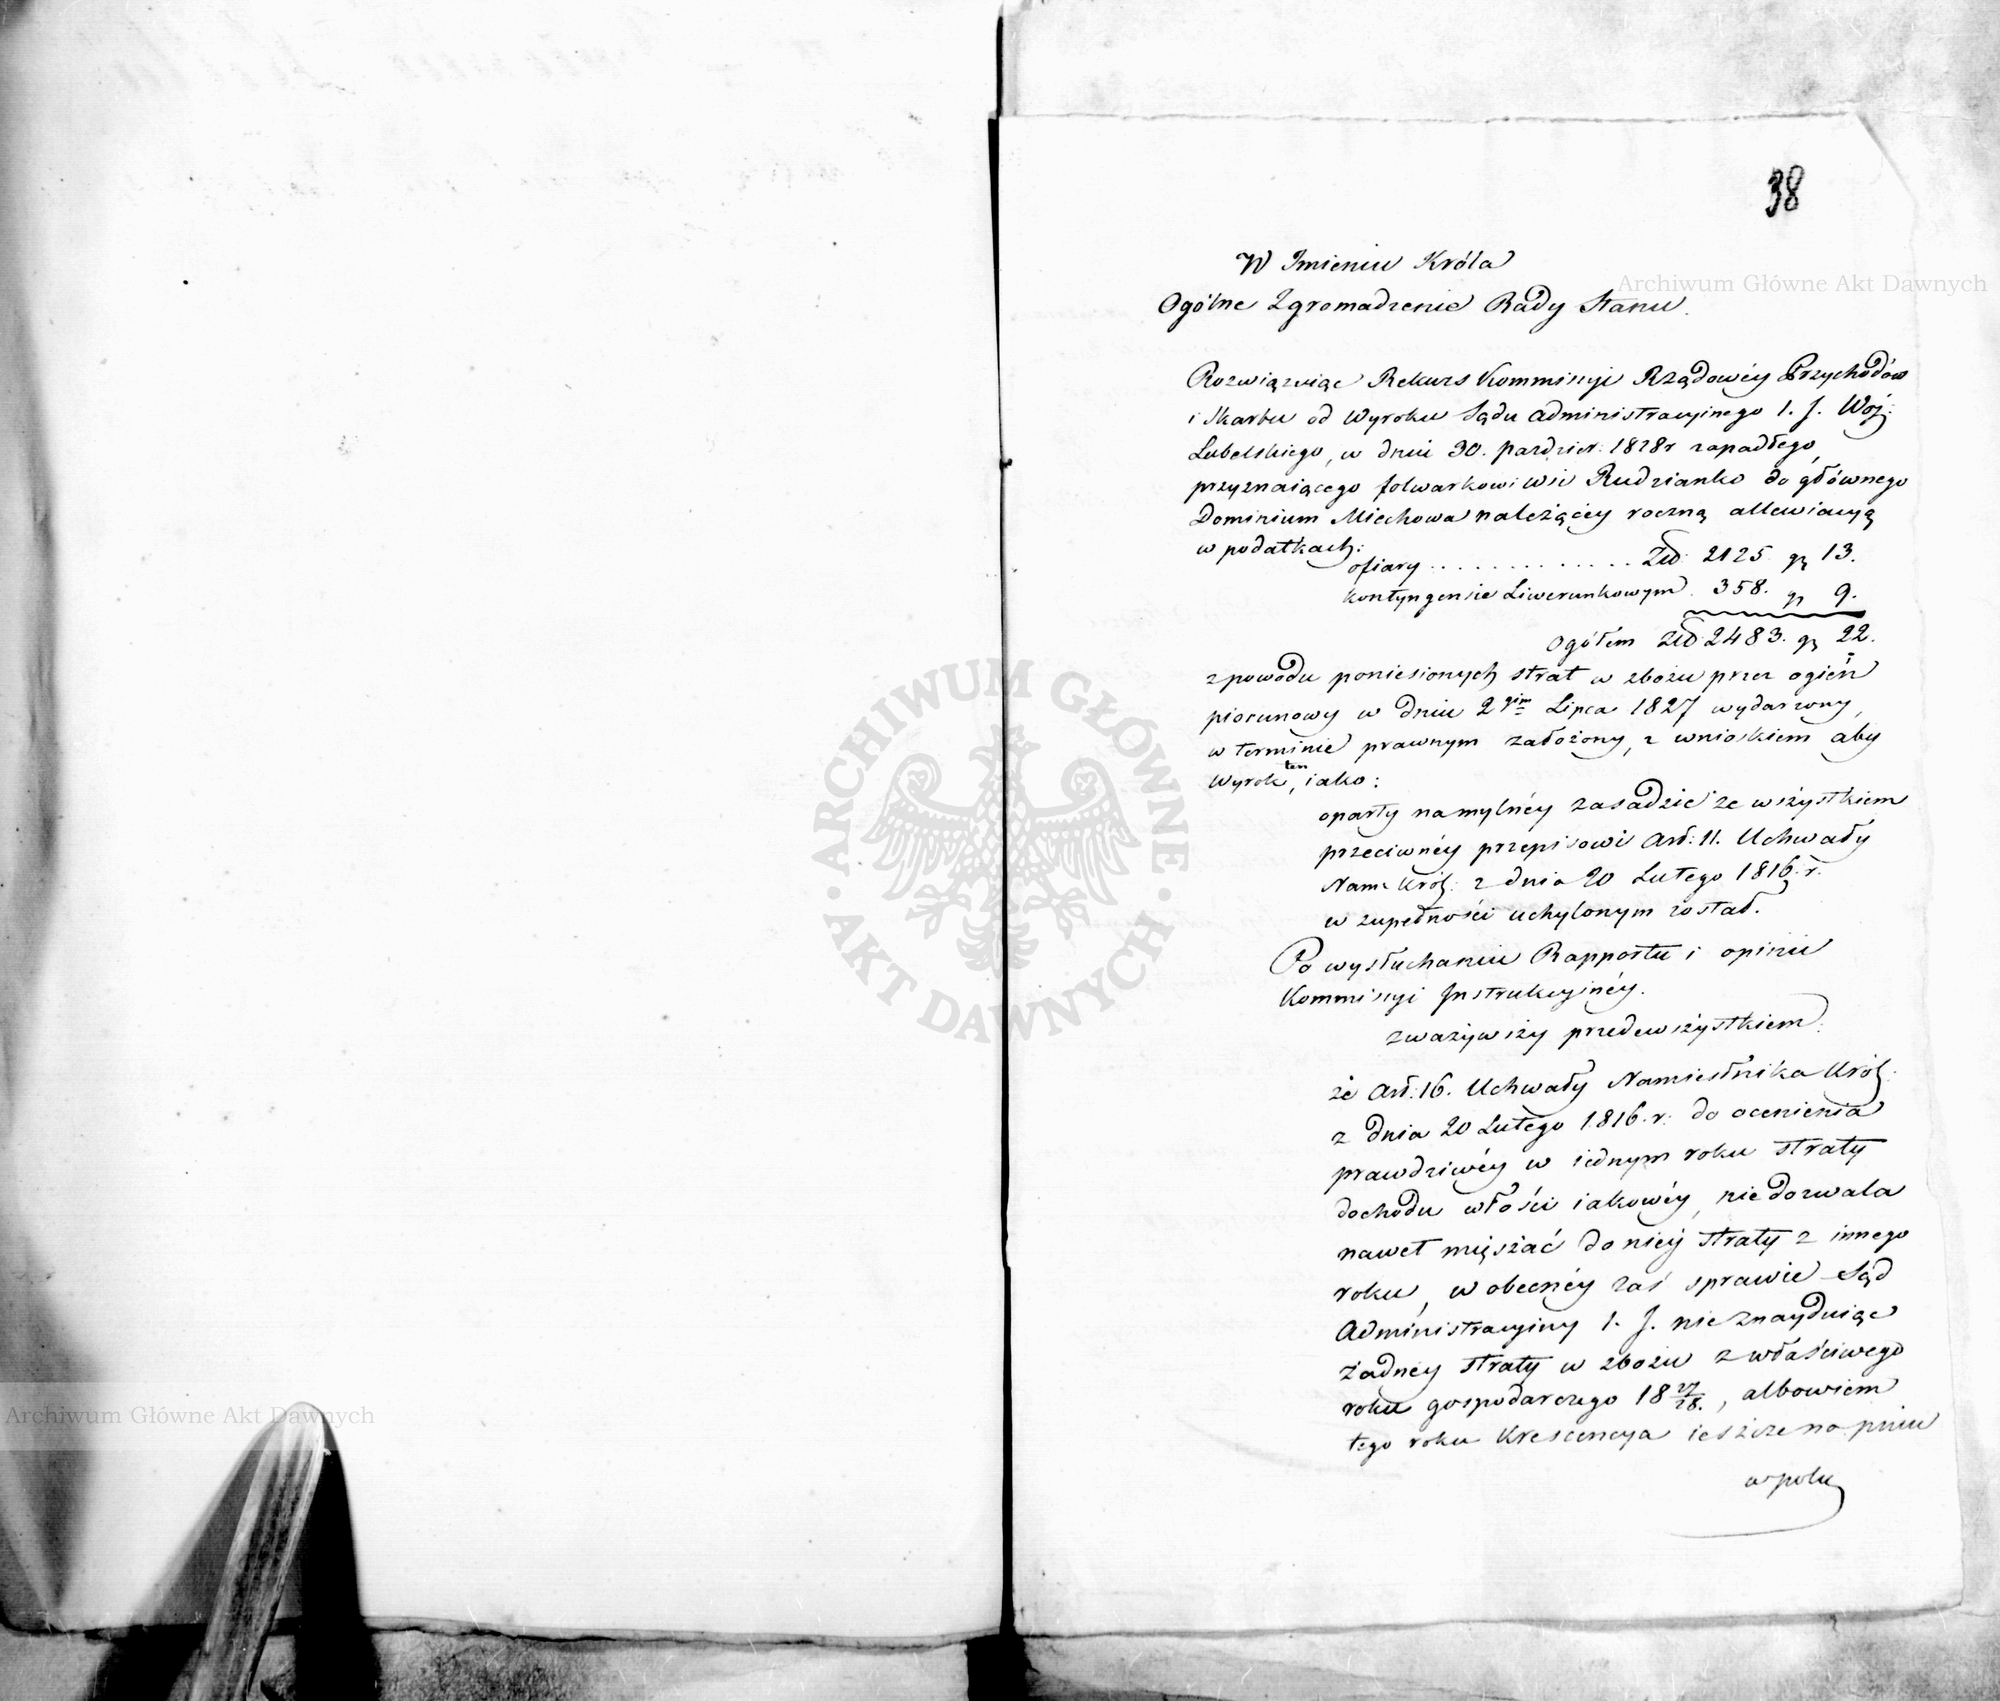 38
W Imieniu Króla
Ogólne Zgromadzenie Rady Stanu.
Rozwiązuiąc Rekurs Kommissyi Rządowéy Przychodów
i Skarbu od Wyroku Sądu Administracyinego I. J. Woj:
Lubelskiego, w dniu 30. pazdzier: 1828r zapadłego,
przyznaiącego folwarkowi wsi Rudzianko do głównego
Dominium Miechowa należącéy roczną allewiacyą
w podatkach:
ofiary . . . . . . . . . . . . . . Złł: 2125 gr 13.
kontyngensie Liwerunkowym. 358. gr 9.
Ogółem Złł 2483. gr 22.
z powodu poniesionych strat w zbożu przez ogień
piorunowy w dniu 2gim Lipca 1827 wydarzony,
w terminie prawnym założony, z wnioskiem aby
Wyrok ten, iako:
oparty na mylnéy zasadzie ze wszystkiem
przeciwnéy przepisowi Art: 11. Uchwały
Nam: Król: z dnia 20 Lutego 1816. r.
w zupełności uchylonym został.
Po wysłuchaniu Rapportu i opinii
Kommissyi Instrukcyinéy.
zważywszy przedewszystkiem:
że Art: 16. Uchwały Namiestnika Król:
z dnia 20 Lutego 1816. r: do ocenienia
prawdziwéy w iednym roku straty
dochodu włości iakowéy, niedozwala
nawet mięszać do niéy straty z innego
roku, w obecnéy zaś sprawie Sąd
Administracyiny I. J. nieznayduiąc
żadnéy straty w zbożu z właściwego
roku gospodarczego 18 27/28., albowiem
tego roku Krescencya ieszcze na pniu
w polu
Archiwum Główne Akt Dawnych
Archiwum Główne Akt Dawnych
ARCHIWUM GŁÓWNE · AKT DAWNYCH ·